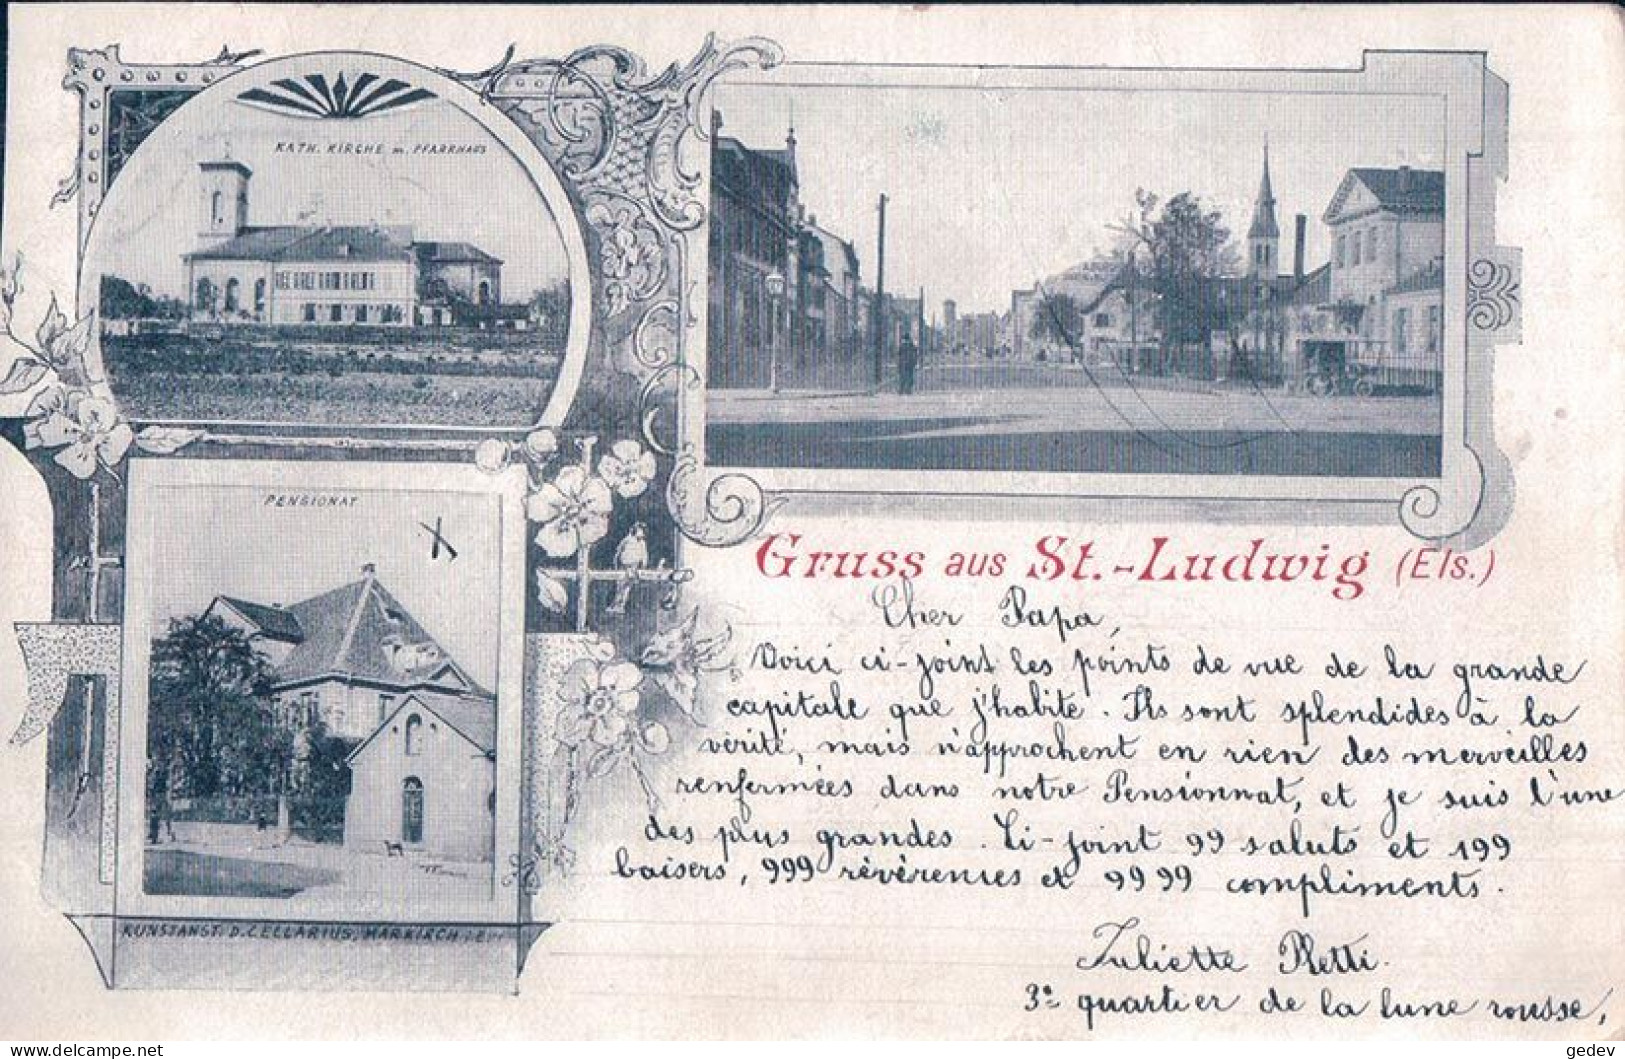 KATH. KIRCHE m. PFARRHAUS
PENSIONAT
KUNSTANST. D. CELLARIUS, MARKIRCH i. E.
Gruss aus St.-Ludwig (Els.)
Cher Papa,
Voici ci-joint les points de vue de la grande
capitale que j'habite. Ils sont splendides à la
vérité, mais n'approchent en rien des merveilles
renfermées dans notre Pensionnat, et je suis l'une
des plus grandes. Ci-joint 99 saluts et 199
baisers, 999 révérences et 9999 compliments.
Juliette Pletti.
3e quartier de la lune rousse,
delcampe.net
gedev